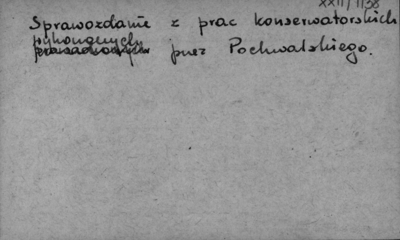 XXII/1138
Sprawozdanie z prac konserwatorskich
wykonanych
przez Pochwalskiego.